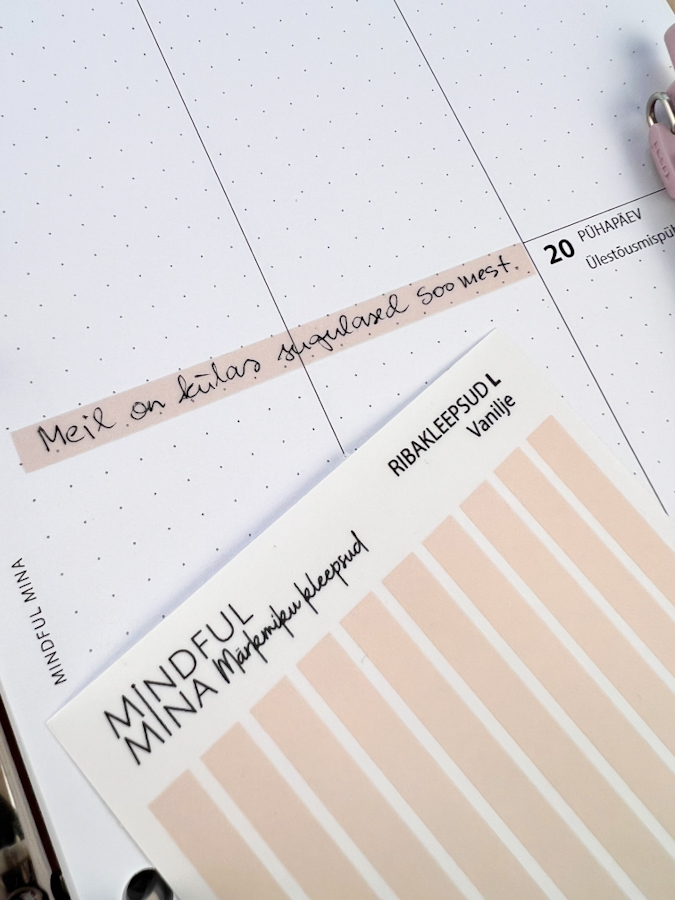 20 PÜHAPÄEV
Ülestõusmispüh
Meil on külas sugulased Soomest.
MINDFUL MINA
RIBAKLEEPSUD L
Vanilje
MINDFUL
MINA Märkmiku kleepsud